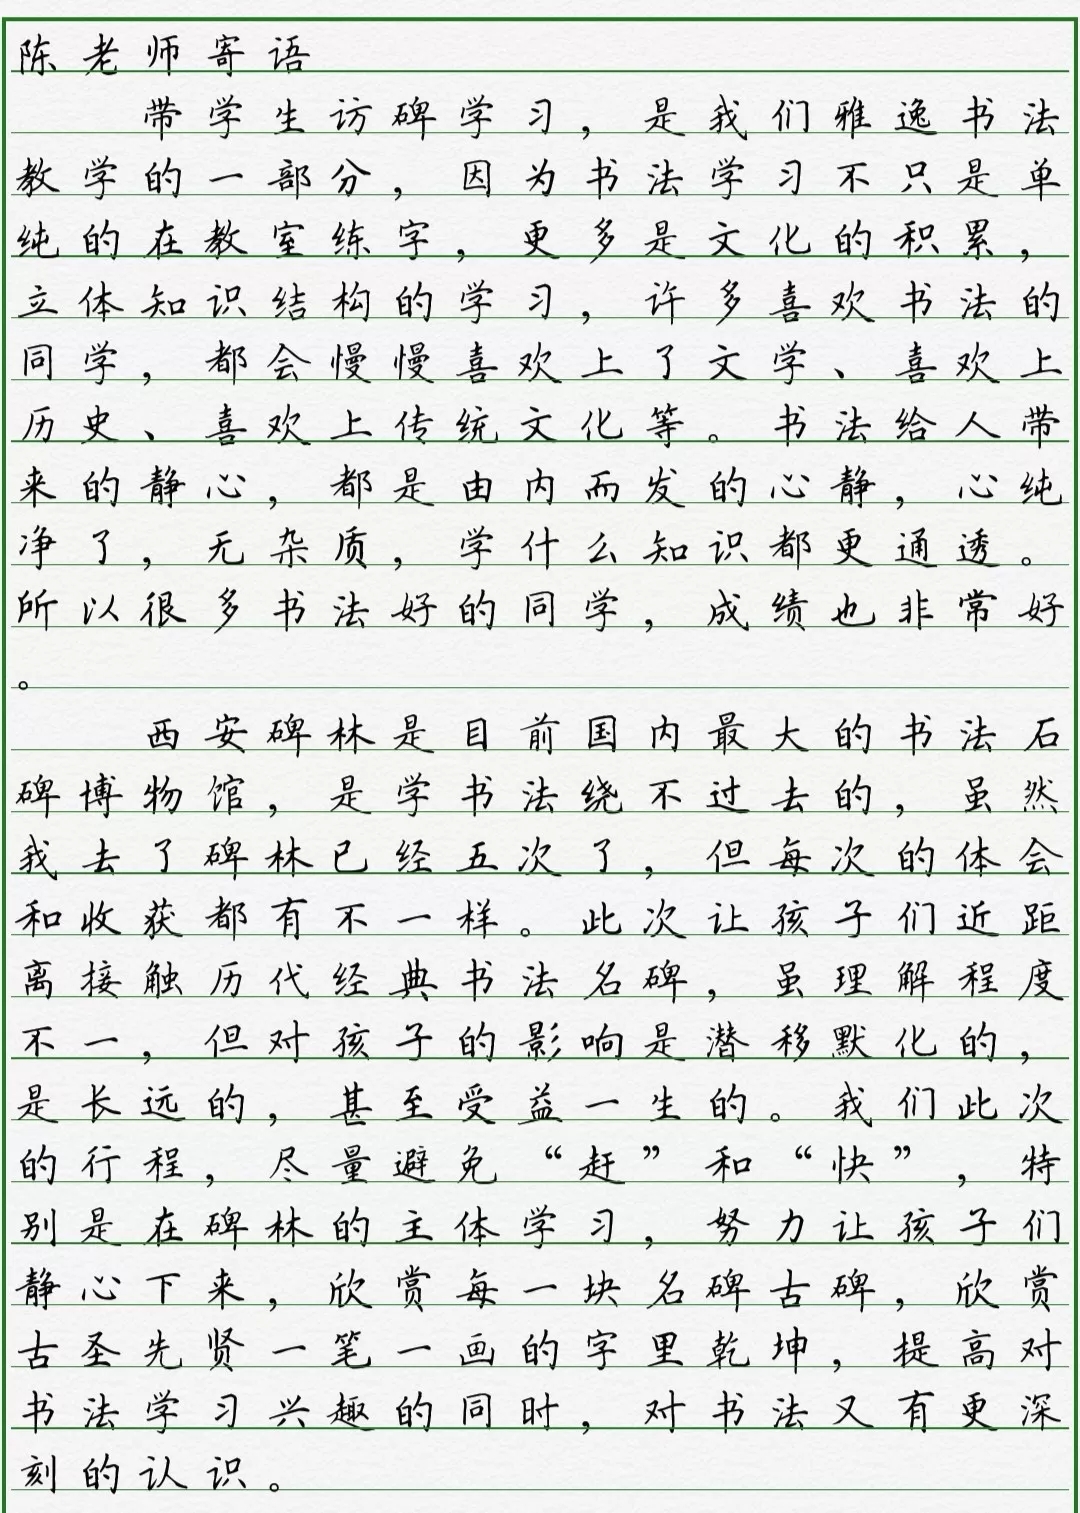 陈老师寄语
带学生访碑学习，是我们雅逸书法
教学的一部分，因为书法学习不只是单
纯的在教室练字，更多是文化的积累，
立体知识结构的学习，许多喜欢书法的
同学，都会慢慢喜欢上了文学、喜欢上
历史、喜欢上传统文化等。书法给人带
来的静心，都是由内而发的心静，心纯
净了，无杂质，学什么知识都更通透。
所以很多书法好的同学，成绩也非常好
。
西安碑林是目前国内最大的书法石
碑博物馆，是学书法绕不过去的，虽然
我去了碑林已经五次了，但每次的体会
和收获都有不一样。此次让孩子们近距
离接触历代经典书法名碑，虽理解程度
不一，但对孩子的影响是潜移默化的，
是长远的，甚至受益一生的。我们此次
的行程，尽量避免“赶”和“快”，特
别是在碑林的主体学习，努力让孩子们
静心下来，欣赏每一块名碑古碑，欣赏
古圣先贤一笔一画的字里乾坤，提高对
书法学习兴趣的同时，对书法又有更深
刻的认识。